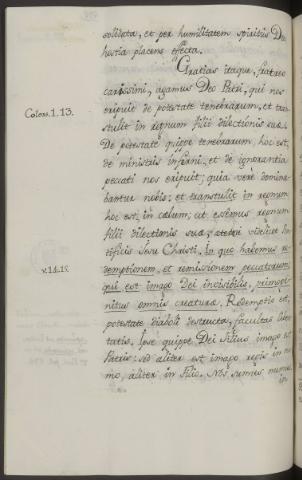 solidata, et per humilitatem spiritus Deo
hostia placens effecta.
Gratias itaque, fratres
carissimi, agamus Deo Patri, qui nos
Colos. 1. 13.
eripuit de potestate tenebrarum, et tran
stulit in regnum filii dilectionis suæ.
De potestate quippe tenebrarum, hoc est,
de ministris inferni, et de ignorantia
peccati nos eripuit; quia vere domina
bantur nobis; et transtulit in regnum
hoc est, in cælum, ut essemus regnum
filii dilectionis suæ,
tificis Jesu Christi. In quo habemus re
v. 14. 15.
demptionem, et remissionem peccatorum
qui est imago Dei invisibilis, primoge
nitus omnis creaturæ. Redemptio est,
potestate diaboli destructa, facultas liber
tatis. Ipse quippe Dei filius imago est
Patris: sed aliter est imago regis in nu
mo, aliter in Filio. Nos sumus numus
in